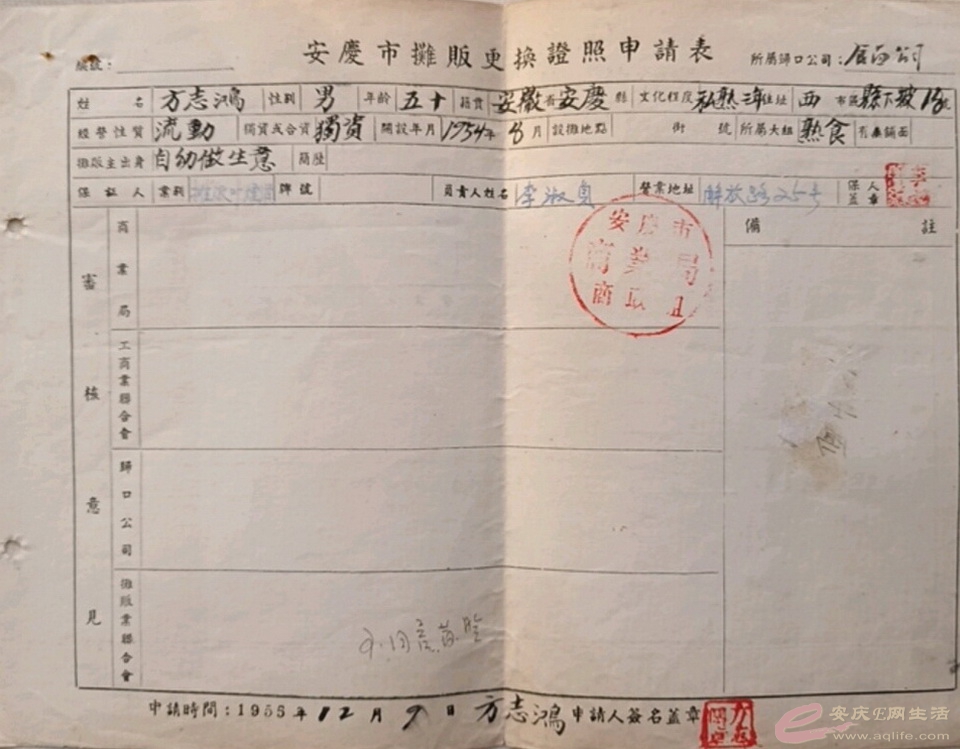 安慶市攤販更換證照申請表
編號： 所屬歸口公司：
姓名 方志鴻 性別 男 年齡 五十 籍貫 安徽省安慶縣 文化程度 私熟三年 住址 西市區縣下坡
經營性質 流動 獨資或合資 獨資 開設年月 1954年8月 設攤地點 街 號 所屬大組 熟食 有無鋪面
攤販主出身 自幼做生意 簡歷
保証人 業別 牌號 負責人姓名 李淑貞 營業地址 解放路25号 保人蓋章
審核意見 商業局 備註
安慶市
商業局
工商業聯合會
歸口公司
攤販業聯合會
申請時間：1955年12月9日 方志鴻 申請人簽名蓋章
安庆E网生活
www.aqlife.com